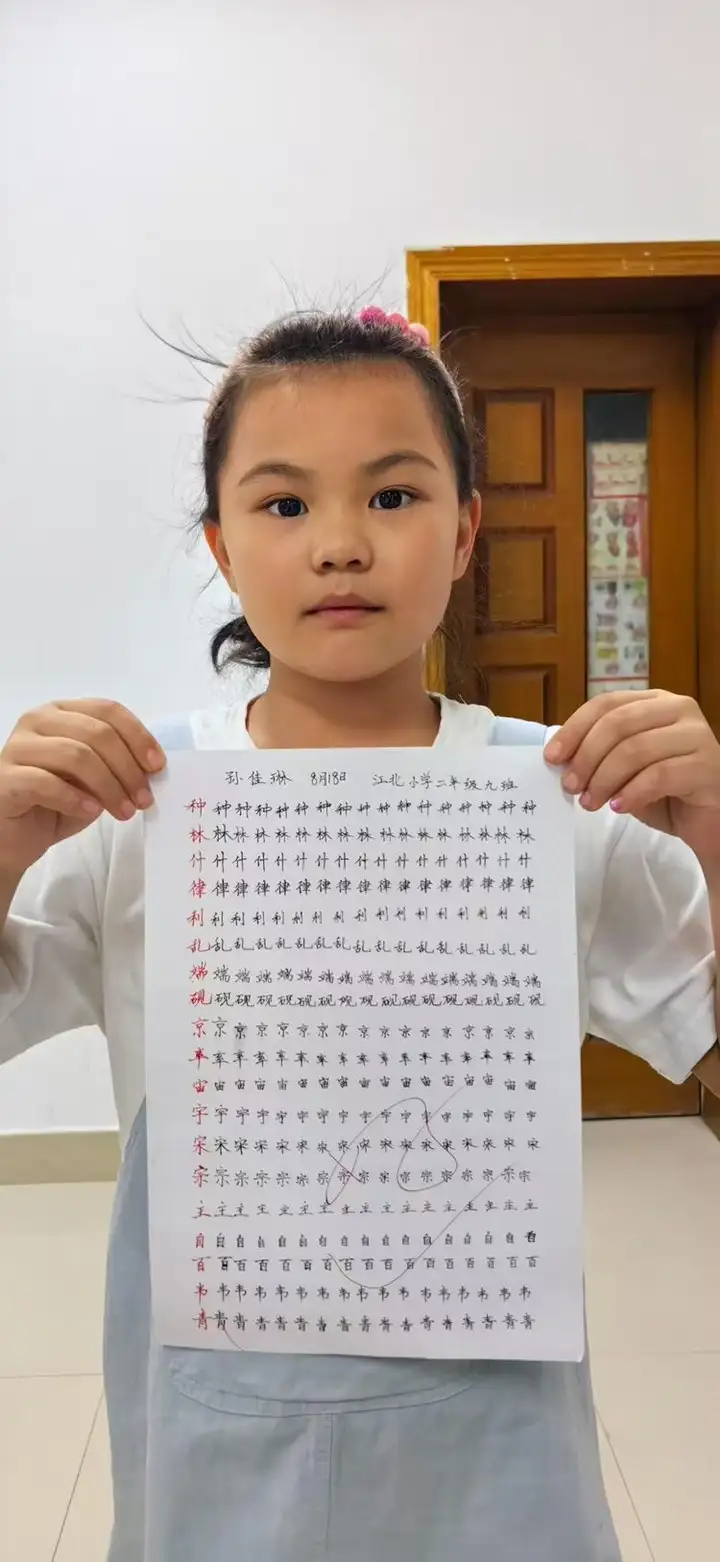 孙佳琳 8月18日 江北小学二年级九班
种种种种种种种种种种种种种种种种种
林林林林林林林林林林林林林林林林林
什什什什什什什什什什什什什什什什什
律律律律律律律律律律律律律律律律律
利利利利利利利利利利利利利利利利利
乱乱乱乱乱乱乱乱乱乱乱乱乱乱乱乱乱
端端端端端端端端端端端端端端端端端
砚砚砚砚砚砚砚砚砚砚砚砚砚砚砚砚砚
京京京京京京京京京京京京京京京京京
率率率率率率率率率率率率率率率率率
宙宙宙宙宙宙宙宙宙宙宙宙宙宙宙宙宙
字字字字字字字字字字字字字字字字字
宋宋宋宋宋宋宋宋宋宋宋宋宋宋宋宋宋
宗宗宗宗宗宗宗宗宗宗宗宗宗宗宗宗宗
主主主主主主主主主主主主主主主主主
自自自自自自自自自自自自自自自自自
百百百百百百百百百百百百百百百百百
韦韦韦韦韦韦韦韦韦韦韦韦韦韦韦韦韦
青青青青青青青青青青青青青青青青青